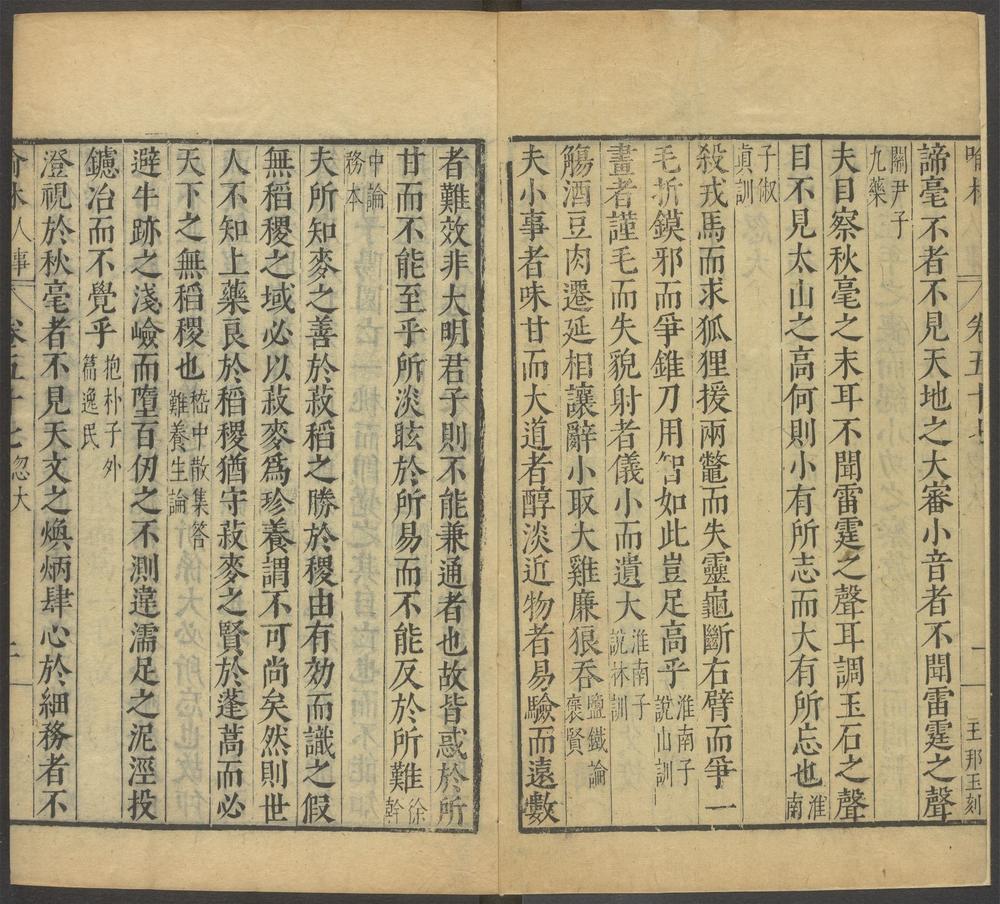 喻林 卷五十七 二 王那玉刻
諦毫不者不見天地之大審小音者不聞雷霆之聲
關尹子九藥
夫目察秋毫之末耳不聞雷霆之聲耳調玉石之聲
目不見太山之高何則小有所志而大有所忘也淮南
子俶真訓
殺戎馬而求狐狸援兩鼈而失靈龜斷右臂而爭一
毛折鏌邪而爭錐刀用智如此豈足高乎淮南子說山訓
畫者謹毛而失貌射者儀小而遺大淮南子說林訓
觴酒豆肉遷延相讓辭小取大雞廉狼吞鹽鐵論褒賢
夫小事者味甘而大道者醇淡近物者易驗而遠數
者難效非大明君子則不能兼通者也故皆惑於所
甘而不能至乎所淡眩於所易而不能反於所難徐幹
中論務本
夫所知麥之善於菽稻之勝於稷由有効而識之假
無稻稷之域必以菽麥爲珍養謂不可尚矣然則世
人不知上藥良於稻稷猶守菽麥之賢於蓬蒿而必
天下之無稻稷也嵇中散集答難養生論
避牛跡之淺嶮而墮百仞之不測違濡足之泥涇投
鑪冶而不覺乎抱朴子外篇逸民
澄視於秋毫者不見天文之煥炳肆心於細務者不
喻林人事 卷五十七 忽大 二